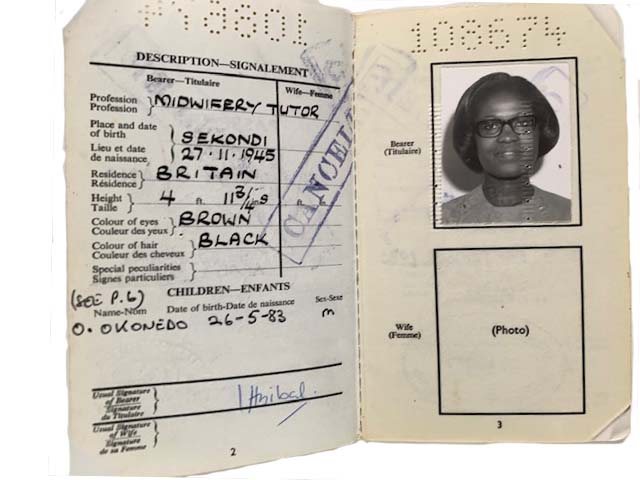 108674
DESCRIPTION—SIGNALEMENT
Bearer—Titulaire
Wife—Femme
Profession
Profession } MIDWIFERY TUTOR
Place and date
of birth
Lieu et date
de naissance } SEKONDI
27·11·1945
Residence
Résidence } BRITAIN
Height
Taille } 4 ft. 11 3/4 ins
Colour of eyes
Couleur des yeux } BROWN
Colour of hair
Couleur des cheveux } BLACK
Special peculiarities
Signes particuliers }
CANCELLED
CHILDREN—ENFANTS
(SEE P.6)
Name-Nom Date of birth-Date de naissance Sex-Sexe
O. OKONEDO 26-5-83 M
Usual Signature
of Bearer
Signature
du Titulaire
Usual Signature
of Wife
Signature
de sa Femme
2
108674
Bearer
(Titulaire)
Wife
(Femme)
(Photo)
3